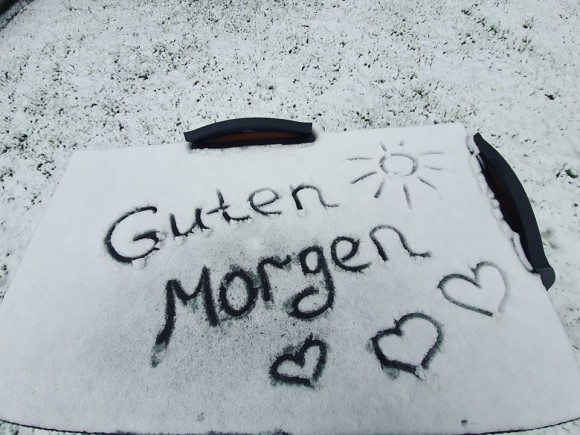 Guten
Morgen